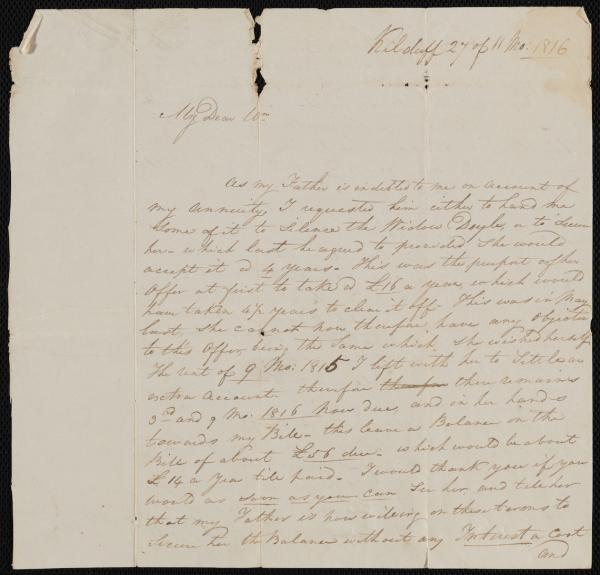 Kilduff 27 of 11 Mo: 1816
My Dear Wm
As my Father is indebted to me on account of
my annuity, I requested him either to hand me
some of it to Silence the Widow Doyle, or to Secure
her - which last he agreed to provided She would
accept it in 4 years. This was the purport of her
Offer at first to take £16 a year, which would
have taken 4½ years to clear it off - This was in May
last, She cannot now therefore, have any Objection
to this Offer, being the Same which She wished herself
The rent of 9 Mo: 1815 I left with her to Settle an
extra account. therefore therefore there remains
3rd and 9 Mo: 1816 Now due, and in her hands
towards my Bill - this leaves a Balance on the
Bill of about £56 due - which would be about
£14 a year till paid. I would thank you if you
would as soon as you can See her, and tell her
that my Father is now willing on these terms to
Secure her the Balance without any Interest or Cost
and